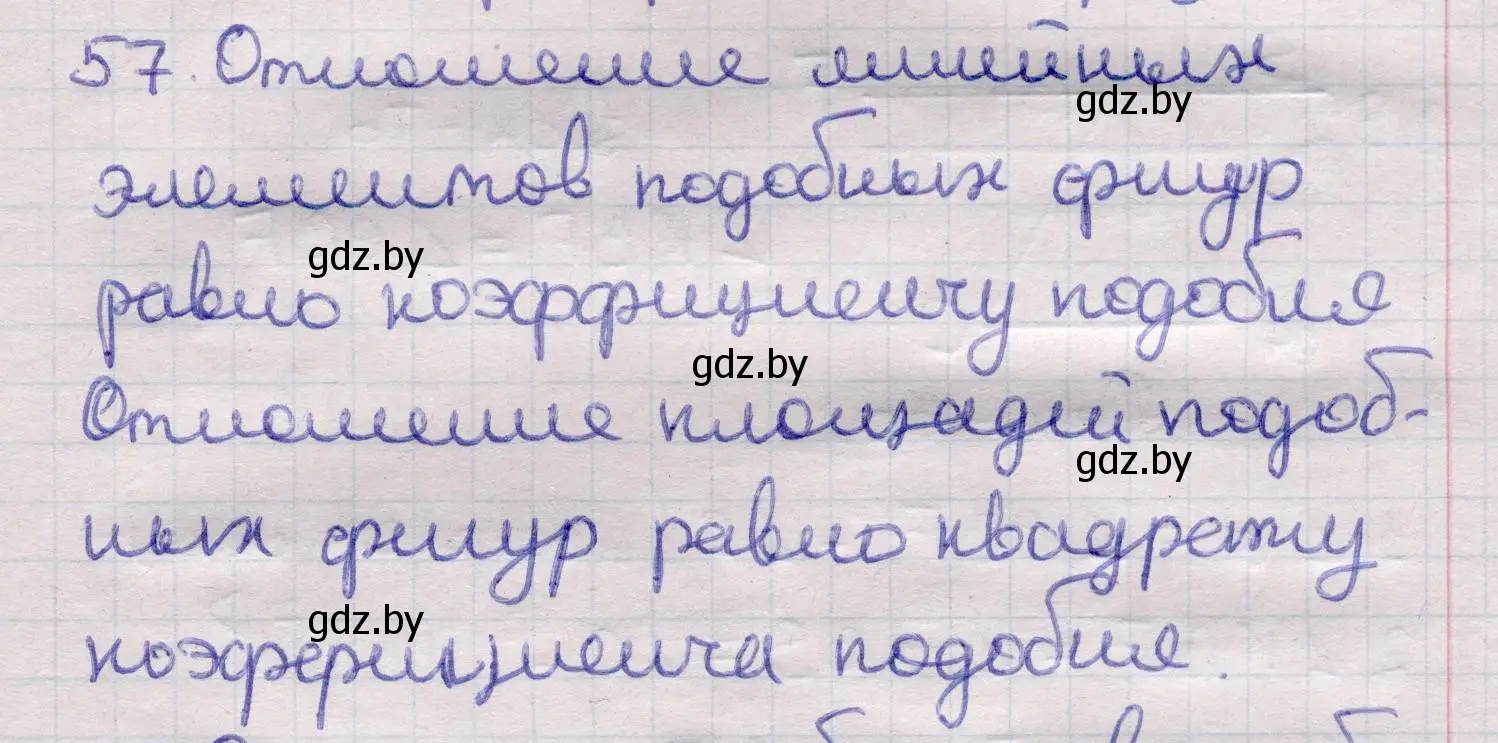 57. Отношение линейных
gdz.by
элементов подобных фигур
gdz.by
равно коэффициенту подобия
gdz.by
Отношение площадей подоб-
gdz.by
ных фигур равно квадрату
gdz.by
коэффициента подобия.